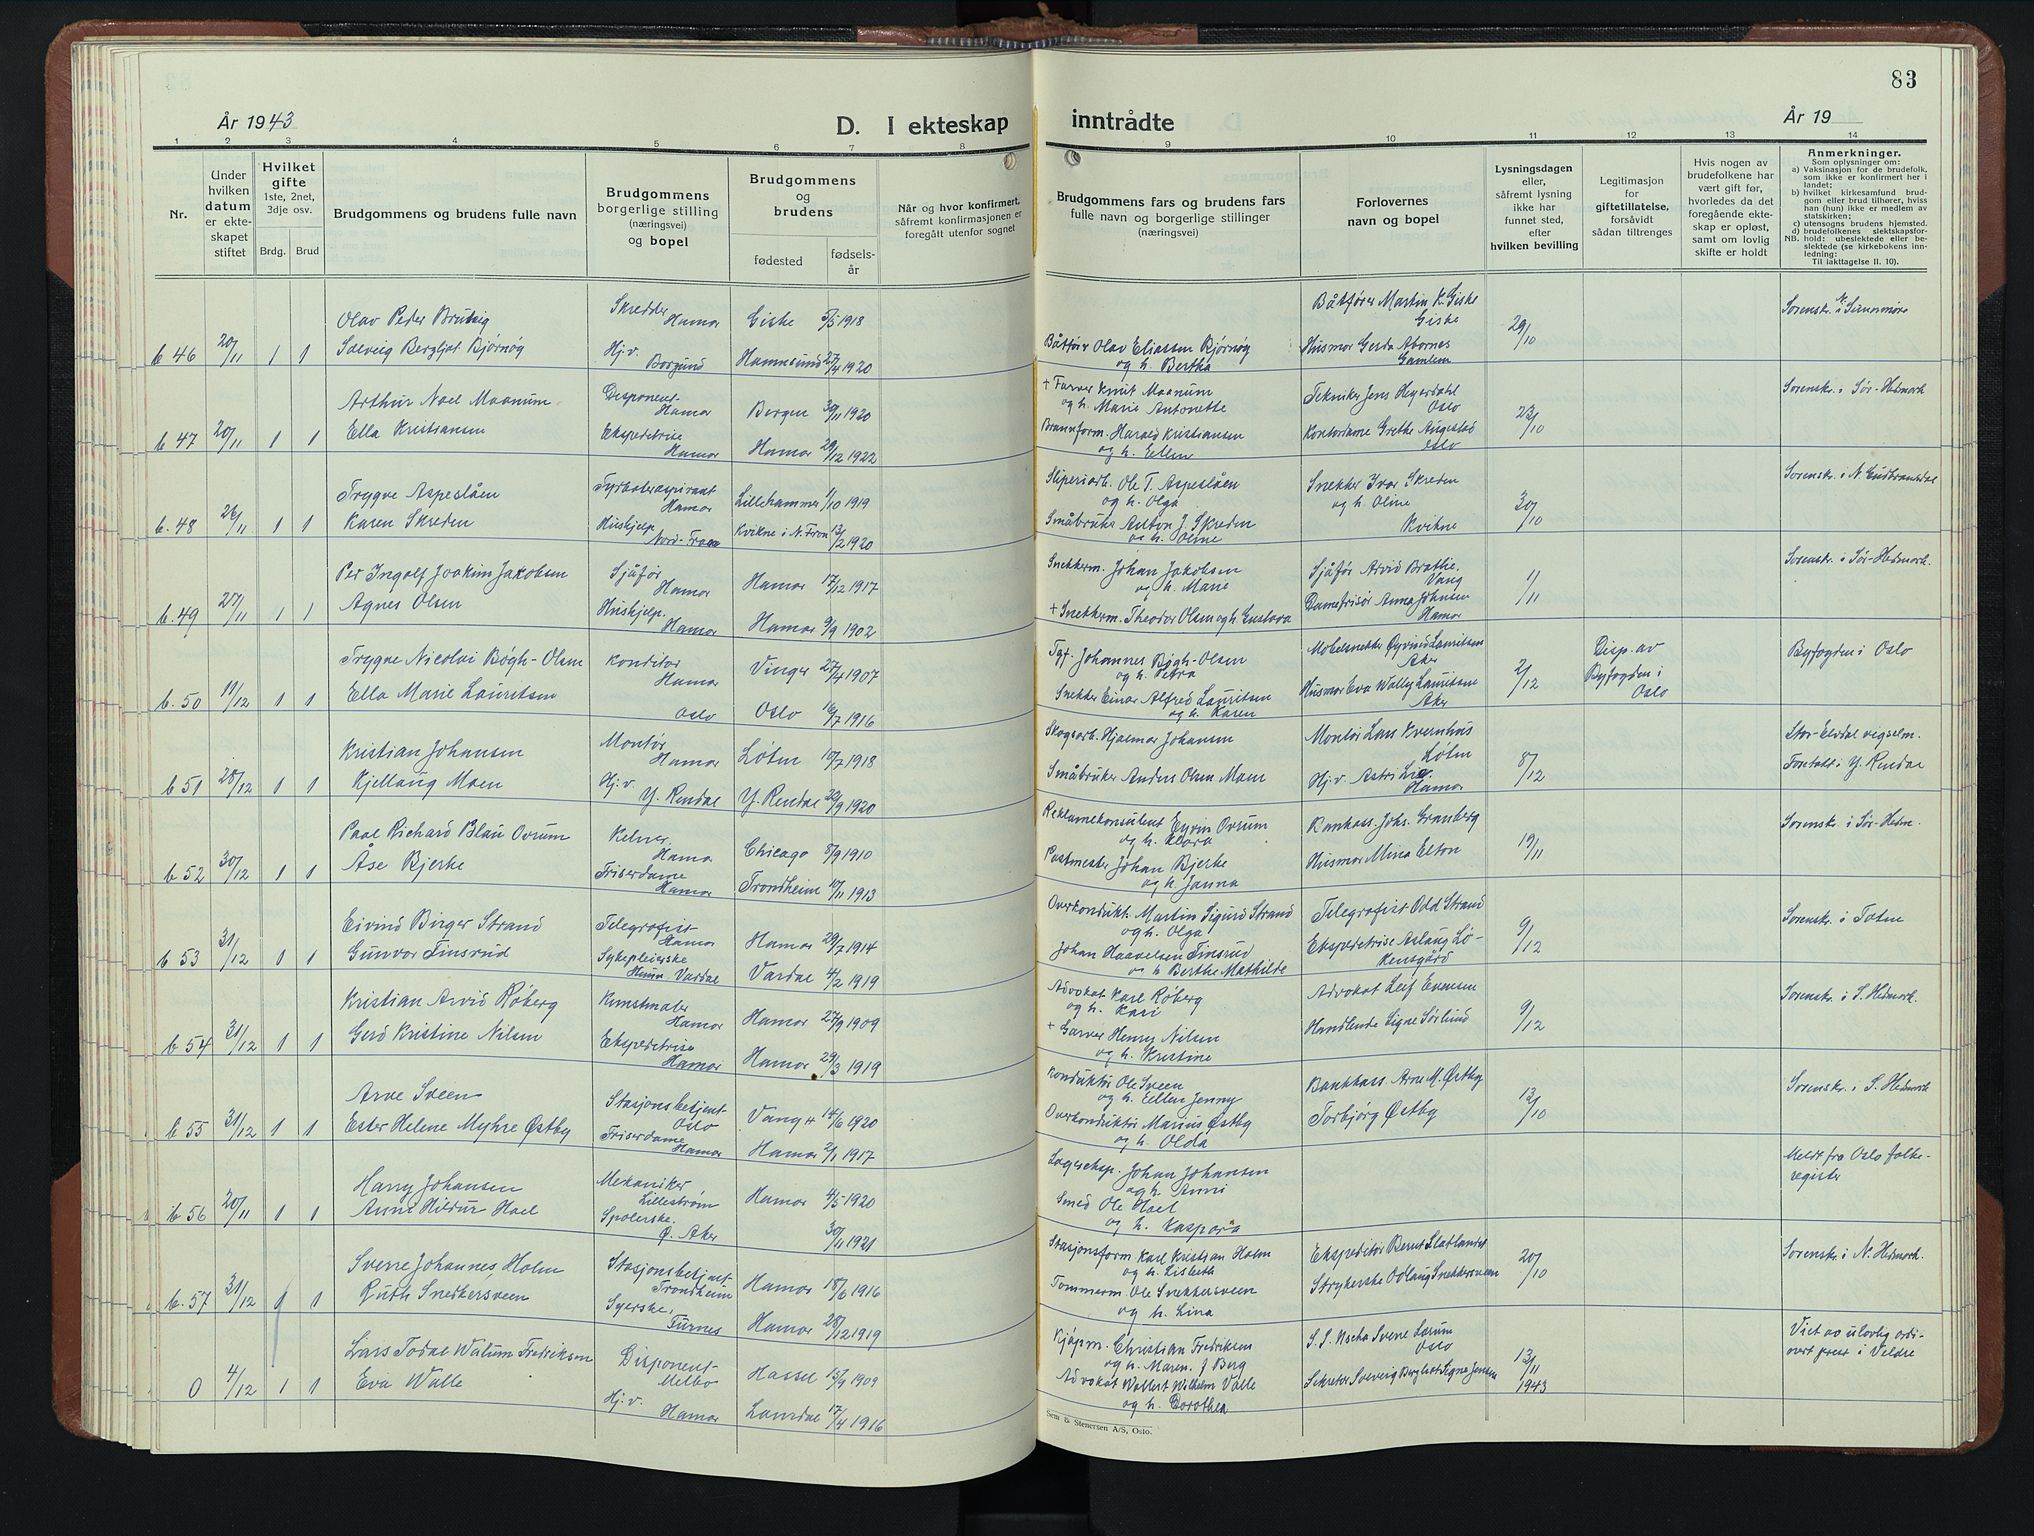 83
År 1943
D. I ekteskap inntrådte
År 19
1 2 3 4 5 6 7 8 9 10 11 12 13 14
Nr.
Under hvilken datum er ekteskapet stiftet
Hvilket gifte
1ste, 2net, 3dje osv.
Brdg. Brud
Brudgommens og brudens fulle navn
Brudgommens borgerlige stilling (næringsvei) og bopel
Brudgommens og brudens
fødested
fødselsår
Når og hvor konfirmert, såfremt konfirmasjonen er foregått utenfor sognet
Brudgommens fars og brudens fars fulle navn og borgerlige stillinger (næringsvei)
Forlovernes navn og bopel
Lysningsdagen eller, såfremt lysning ikke har funnet sted, efter hvilken bevilling
Legitimasjon for giftetillatelse, forsåvidt sådan tiltrenges
Hvis nogen av brudefolkene har vært gift før, hvorledes da det foregående ekteskap er opløst, samt om lovlig skifte er holdt
Anmerkninger.
Som oplysninger om:
a) Vaksinasjon for de brudefolk, som ikke er konfirmert her i landet;
b) hvilket kirkesamfund brudgom eller brud tilhører, hviss han (hun) ikke er medlem av statskirken;
c) utensogns brudens hjemsted.
d) brudefolkenes slektskapsforhold: ubeslektede eller beslektede (se kirkebokens innledning:
NB.
Til iakttagelse II. 10).
b 46 20/11 1 1 Olav Peder Skredder Hamar Giske 5/5 1918 Båtfører Martin K. Giske Giske 29/10 Sorenskr. i N. Sunnmøre
Solveig Bergljot Bjørnøy Hj.v. Borgund Hamnsund 27/4 1920 Båtfører Olav Eliassen Bjørnøy og h. Bertha Husmor Gerda Gamlem
b 47 20/11 1 1 Arthur Noel Maanum Disponent Hamar Bergen 30/11 1920 + Farver Knut Maanum og h. Marie Antonette Tekniker Jens Heyerdahl Oslo 23/10 Sorenskr. i Sør-Hedmark
Ella Kristiansen Ekspeditrise Hamar Hamar 29/12 1922 Brannform. Harald Kristiansen og h. Ellen Kontordame Grethe Augestad Oslo
b. 48 26/11 1 1 Trygve Aspeslåen Fyrbøteraspirant Hamar Lillehammer 1/10 1919 Sliperiarb. Ole T. Aspeslåen og h. Olga Snekker Ivar Skreden og h. Oline Kvikne 30/10 Sorenskr. i N. Gudbrandsdal
Karen Skreden Hushjelp Nord-Fron Kvikne i N. Fron 13/2 1920 Småbruker Anton J. Skreden og h. Oline
b. 49 27/11 1 1 Per Ingolf Joakim Jakobsen Sjåfør Hamar Hamar 17/12 1917 Snekkerm. Johan Jakobsen og h. Marie Sjåfør Arvid Brathe Vang 1/11 Sorenskr. i Sør-Hedmark
Agnes Olsen Hushjelp. Hamar Hamar 9/9 1902 + Snekkerm. Theodor Olsen og h. Gustava Damefrisør Anna Johnsen Hamar
b. 50 11/12 1 1 Trygve Nicolai Bøgh-Olsen Konditor Hamar Vinger 27/4 1907 Johannes Bøgh-Olsen og h. Petra Møbelsnekker Øyvind Lauritsen Aker 2/12 Disp. av Byfogden i Oslo Byfogden i Oslo
Ella Marie Lauritsen Oslo Oslo 16/7 1916 Snekker Einar Alfred Lauritsen og h. Karen Husmor Eva Wally Lauritsen Aker
b 51 28/12 1 1 Kristian Johansen Montør Hamar Løten 10/7 1918 Skogsarb. Hjalmar Johansen Montør Lars Kvernhus Løten 8/12 Stor-Elvdal vigselm.
Kjellaug Moen Hj.v. Y. Rendal Y. Rendal 22/9 1920 Småbruker Anders Olsen Moen Hj.v. Astri Lie. Hamar Foretatt i Y. Rendal
b 52 30/12 1 1 Paal Richard Blau Ovrum Kelner Hamar Chicago 8/9 1910 Reklamekonsulent Eyvin Ovrum og h. Klara Bankass. Johs. Granberg 19/11 Sorenskr. i Sør-Hedm.
Åse Bjerke Friserdame Hamar Trondheim 10/11 1913 Postmester Johan Bjerke og h. Janna Husmor Mina Elton
b 53 31/12 1 1 Eivind Birger Strand Telegrafist Hamar Hamar 29/7 1914 Overkondukt. Martin Sigurd Strand og h. Olga Telegrafist Odd Strand 9/12 Sorenskr. i Toten
Gunvor Finsrud Sykepleierske Hunn Vardal Vardal 4/2 1919 Johan Haavelsen Finsrud og h Berthe Mathilde Ekspeditrise Aslaug Løkensgård
b 54 31/12 1 1 Kristian Arvid Røberg Kunstmaler Hamar Hamar 27/9 1909 Advokat Karl Røberg og h. Kari Advokat Leif Evensen 9/12 Sorenskr. i S. Hedmark.
Gerd Kristine Nilsen Ekspeditrise Hamar Hamar 29/3 1919 + Garver Henry Nilsen og h. Kristine Handlende Signe Sørlund
b 55 31/12 1 1 Arve Sveen Stasjonsbetjent Oslo Vang H 14/6 1920 Konduktør Ole Sveen og h. Ellen Jenny Bankkass. Arne M. Østby 13/10 Sorenskr. i S. Hedmark
Ester Helene Myhre Østby Friserdame Hamar Hamar 2/1 1917 Overkonduktør Marius Østby og h. Olda Torbjørg Østby
b 56 20/11 1 1 Harry Johansen Mekaniker Lillestrøm Hamar 4/5 1920 Lagereksp. Johan Johansen og h. Anni Meldt fra Oslo folkeregister
Anne Hildur Hoel Spolerske. Ø. Aker 30/11 1921 Smed Ole Hoel og h. Kaspara
b. 57 31/12 1 1 Sverre Johannes Holm Stasjonsbetjent Trondheim Hamar 18/6 1916 Stasjonsform Karl Kristian Holm og h. Lisbeth Ekspeditør Bernt Slatlandet 20/10 Sorenskr. i N. Hedmark.
Ruth Snekkersveen Syerske, Furnes Hamar 28/12 1919 Tømmerm Ole Snekkersveen og h. Lina Strykerske Odlaug Snekkersveen
0 4/12 1 1 Lars Todal Walum Fredriksen Disponent Melbo Hassel 13/9 1909 Kjøpm. Christian Fredriksen og h. Maren. J Berg Sverre Lærum Oslo 13/11 1943 Viet av ulovlig ordinert prest i Veldre
Eva Walle Hj.v. Hamar Laurdal 17/4 1916 Advokat Wollert Wilhelm Valle og h. Dorothea Sekretær Solveig Bergliot Signe Jensen
Sem & Stenersen A/S, Oslo.